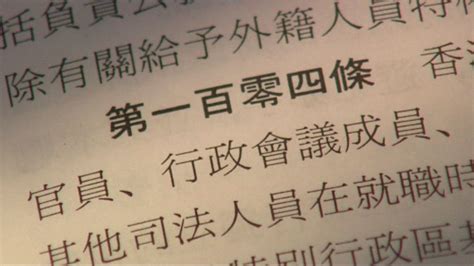 括負責公
除有關給予外籍人員特
第一百零四條 香
官員、行政會議成員、
其他司法人員在就職時
特別行政區